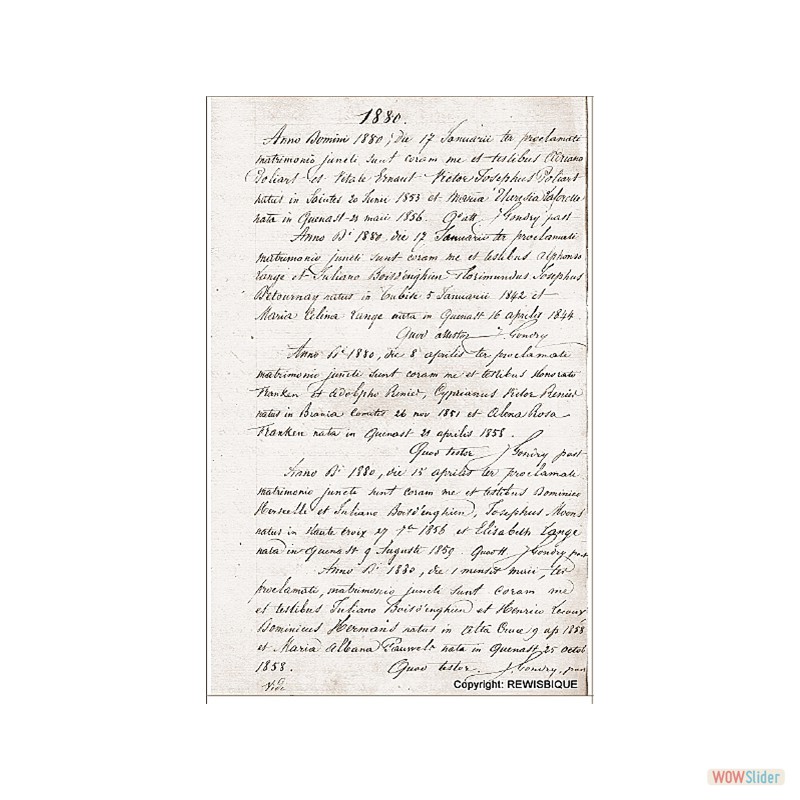 1880.
Anno Domini 1880, die 17 Januarii ter proclamati
matrimonio juncti sunt coram me et testibus Adriano
Poliart et Vitale Ernaut Victor Josephus Poliart
natus in Saintes 20 Junii 1853 et Maria Theresia
nata in Quenast 21 maii 1856. Q. att. J Gondry past
Anno Dⁱ 1880 die 17 Januarii ter proclamati
matrimonio juncti sunt coram me et testibus Alphonso
Lange et Juliano Boisd'enghien Florimundus Josephus
Detournay natus in Tubise 5 Januarii 1842 et
Maria Celina Lange nata in Quenast 16 aprilis 1844
Quod attestor J Gondry
Anno Dⁱ 1880, die 8 aprilis ter proclamati
matrimonio juncti sunt coram me et testibus Honorato
Franken et Adolpho Renier, Cyprianus Victor Renier
natus in Brania Comitis 26 nov 1851 et Alena Rosa
Franken nata in Quenast 21 aprilis 1858.
Quod testor J Gondry past
Anno Dⁱ 1880, die 15 aprilis ter proclamati
matrimonio juncti sunt coram me et testibus Dominico
et Juliano Boisd'enghien, Josephus Moons
natus in Haute Croix 27 7ᵇʳ 1856 et Elisabeth Lange
nata in Quenast 9 Augusti 1859. Quod tt J Gondry past
Anno Dⁱ 1880, die 1 mensis maii, ter
proclamati, matrimonio juncti sunt coram me
et testibus Juliano Boisd'enghien et Henrico
Dominicus Hermans natus in Alta Cruce 9 ap 1858
et Maria Albana Pauwels nata in Quenast 25 octob
1858. Quod testor J Gondry, past
Vidi
Copyright: REWISBIQUE
WOWSlider